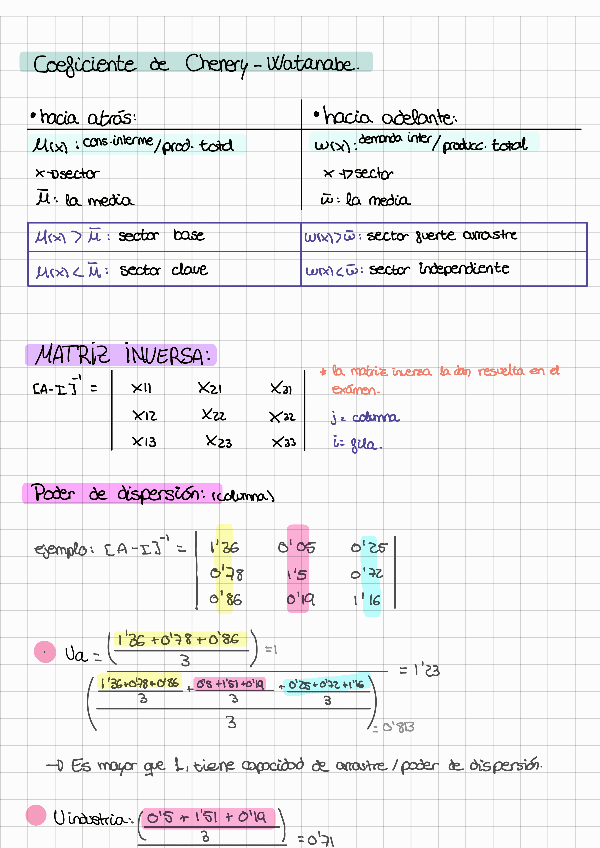 Coeficiente de Chenery-Watanabe.
• hacia atrás:
• hacia adelante:
μ(x): cons. interme/prod. total
w(x): demanda inter/producc. total
x → sector
x → sector
μ̄: la media
w̄: la media
μ(x) > μ̄: sector base
w(x) > w̄: sector fuerte arrastre
μ(x) < μ̄: sector clave
w(x) < w̄: sector independiente
MATRIZ INVERSA:
[A-I]⁻¹ = | x11 x21 x31
x12 x22 x32
x13 x23 x33 |
* la matriz inversa la dan resuelta en el
exámen.
j = columna
i = fila.
Poder de dispersión: (columna)
ejemplo: [A-I]⁻¹ = | 1'36 0'05 0'25
0'78 1'5 0'72
0'86 0'19 1'16 |
Ua = ((1'36+0'78+0'86)/3) = 1
((1'36+0'78+0'86)/3 + (0'5+1'51+0'19)/3 + (0'25+0'72+1'16)/3)/3 = 0'813
= 1'23
→ Es mayor que 1, tiene capacidad de arrastre/poder de dispersión.
Uindustria: (0'5+1'51+0'19)/3 = 0'71